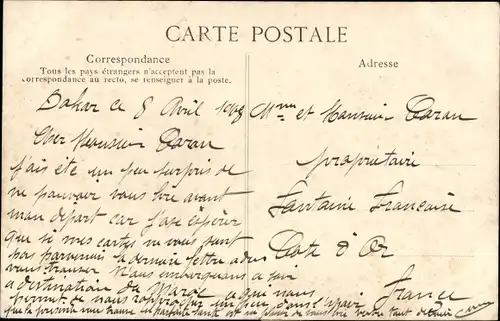 CARTE POSTALE
Correspondance
Tous les pays étrangers n'acceptent pas la
correspondance au recto, se renseigner à la poste.
Adresse
Dakar ce 8 Avril
Cher Monsieur Caran
j'ais été un peu surpris de
ne pouvoir vous lire avant
mon départ car j'ose espérer
que si mes cartes ne vous sont
pas parvenues la dernière lettre a du
vous trouver Nous embarquons ce soir
a destination du Maroc ce qui nous
permet de nous rapprocher un peu dans l'espoir
que la présente vous trouve en parfaite santé est
Mme et Monsieur Caran
propriétaire
Fontaine Française
Cote d'Or
France